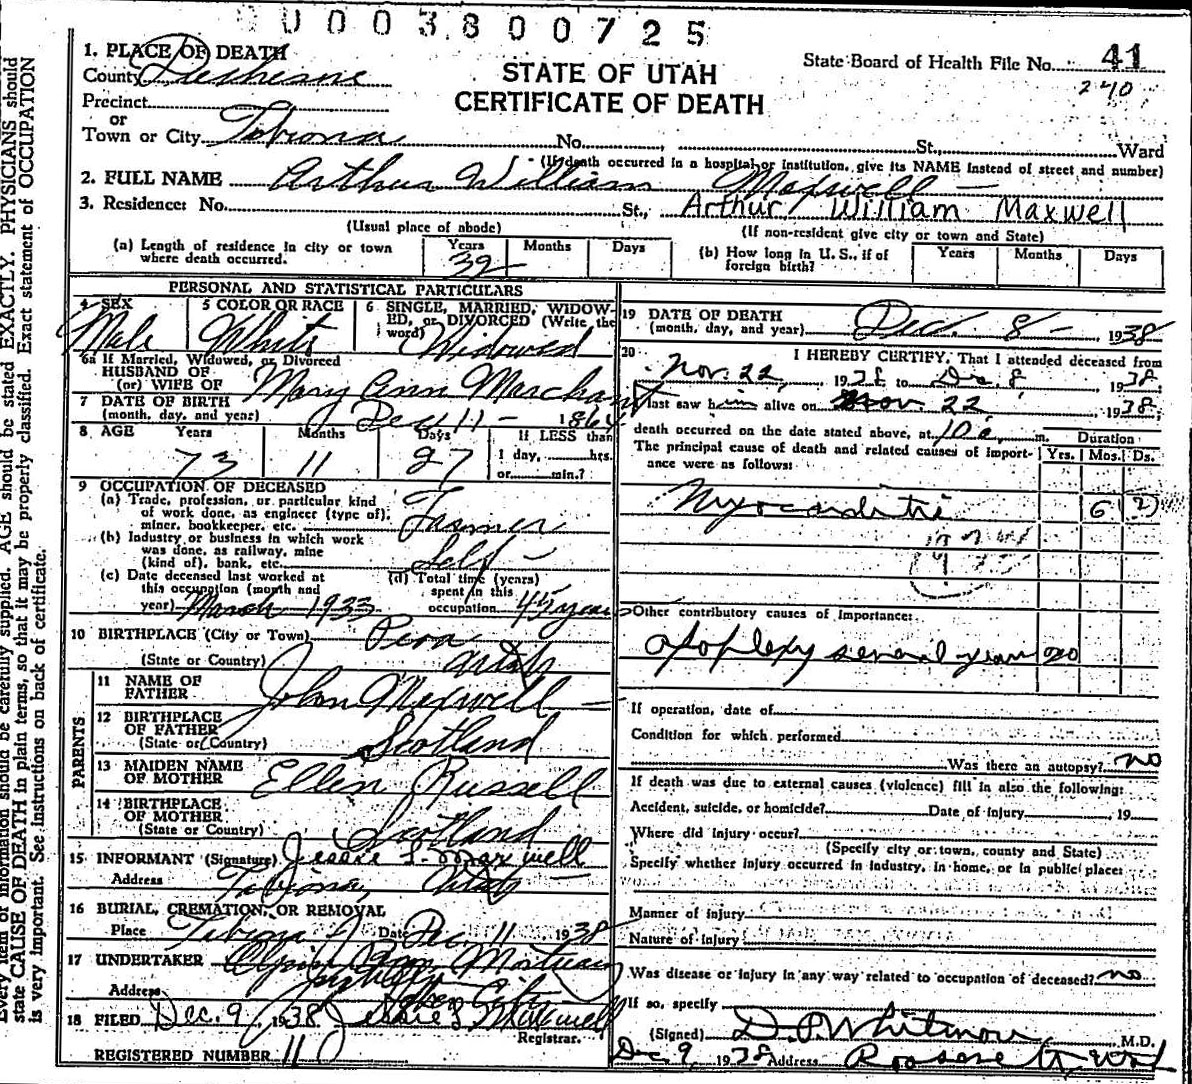 0003800725
1. PLACE OF DEATH
County Duchesne
STATE OF UTAH
CERTIFICATE OF DEATH
State Board of Health File No. 41
240
Precinct
or
Town or City Tabiona No. St., Ward
(If death occurred in a hospital or institution, give its NAME instead of street and number)
2. FULL NAME Arthur William Maxwell
3. Residence: No. St., Arthur William Maxwell
(Usual place of abode) (If non-resident give city or town and State)
(a) Length of residence in city or town where death occurred. Years 32 Months Days
(b) How long in U. S., if of foreign birth? Years Months Days
PERSONAL AND STATISTICAL PARTICULARS
4 SEX Male
5 COLOR OR RACE White
6 SINGLE, MARRIED, WIDOWED, or DIVORCED (Write the word) Widowed
6a If Married, Widowed, or Divorced
HUSBAND OF
(or) WIFE OF Mary Ann Marchant
7 DATE OF BIRTH
(month, day, and year) Dec 11 - 1864
8 AGE Years 73 Months 11 Days 27 If LESS than
1 day, hrs.
or min.?
9 OCCUPATION OF DECEASED
(a) Trade, profession, or particular kind
of work done, as engineer (type of),
miner, bookkeeper, etc. Farmer
(b) Industry or business in which work
was done, as railway, mine
(kind of), bank, etc. Self -
(c) Date deceased last worked at
this occupation (month and
year) March 1933
(d) Total time (years)
spent in this
occupation 45 years
10 BIRTHPLACE (City or Town) Peoa
(State or Country) Utah
PARENTS
11 NAME OF
FATHER John Maxwell
12 BIRTHPLACE
OF FATHER
(State or Country) Scotland
13 MAIDEN NAME
OF MOTHER Ellen Russell
14 BIRTHPLACE
OF MOTHER
(State or Country) Scotland
15 INFORMANT (Signature) Jessie L. Maxwell
Address Tabiona, Utah
16 BURIAL, CREMATION, OR REMOVAL
Place Tabiona Date Dec. 11 1938
17 UNDERTAKER Mortuary
Address
18 FILED Dec. 9, 1938 Jessie L Maxwell
Registrar.
REGISTERED NUMBER 110
19 DATE OF DEATH
(month, day, and year) Dec. 8 - 1938
20 I HEREBY CERTIFY, That I attended deceased from
Nov. 22, 1938 to Dec. 8, 1938
I last saw him alive on Nov. 22, 1938;
death occurred on the date stated above, at 10 a m.
The principal cause of death and related causes of importance were as follows:
Duration
Yrs. Mos. Ds.
Myocarditis 6
Other contributory causes of importance:
apoplexy several years no
If operation, date of
Condition for which performed
Was there an autopsy? no
If death was due to external causes (violence) fill in also the following:
Accident, suicide, or homicide? Date of injury 19
Where did injury occur?
(Specify city or town, county and State)
Specify whether injury occurred in industry, in home, or in public place:
Manner of injury
Nature of injury
Was disease or injury in any way related to occupation of deceased? no
If so, specify
(Signed) D. P. Whitmore M.D.
Dec 9, 1938 Address Roosevelt, Utah
Every item of information should be carefully supplied. AGE should be stated EXACTLY. PHYSICIANS should
state CAUSE OF DEATH in plain terms, so that it may be properly classified. Exact statement of OCCUPATION
is very important. See instructions on back of certificate.